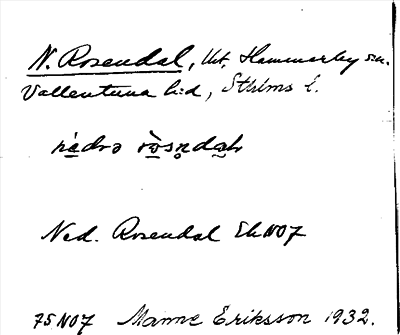 N. Rosendal, Ut. Hammarby sn.
Vallentuna h:d, Sthlms l.
Ned. Rosendal Ek NO7
75 NO7 Manne Eriksson 1932.